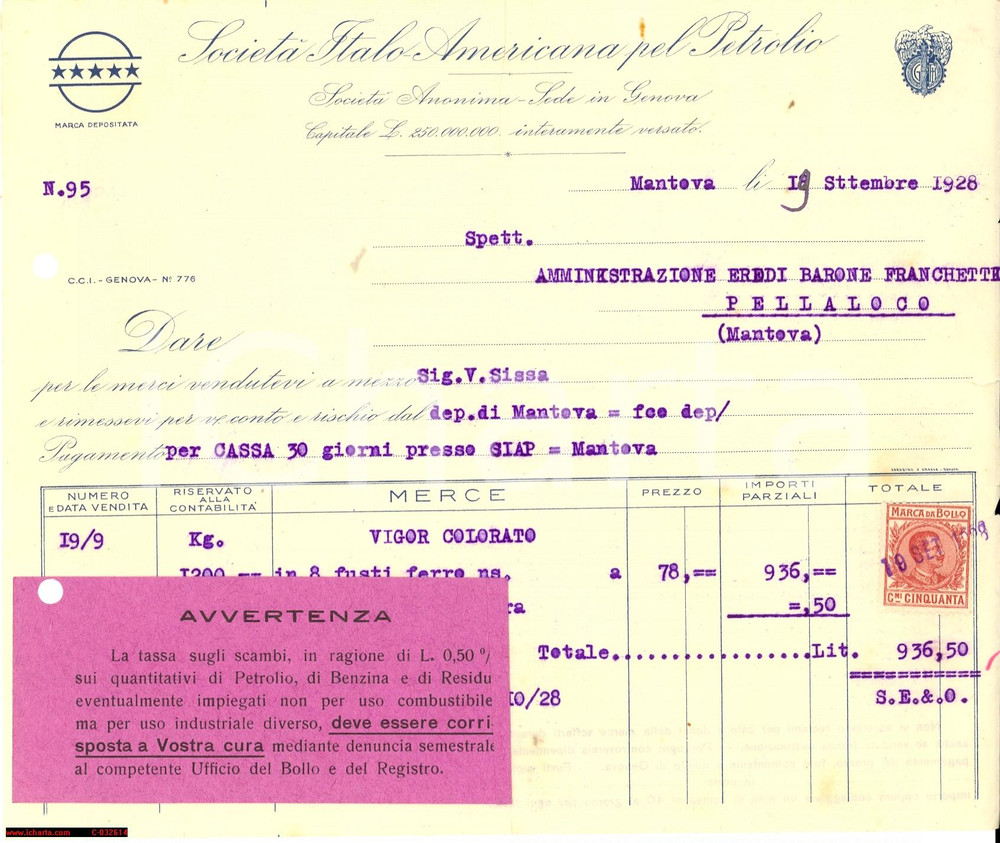 Società Italo-Americana pel Petrolio
Società Anonima - Sede in Genova
Capitale L. 250.000.000. interamente versato.
MARCA DEPOSITATA
N.95
Mantova li 19 Sttembre 1928
Spett.
C.C.I. - GENOVA - Nº 776
AMMINISTRAZIONE EREDI BARONE FRANCHETTI
PELLALOCO
(Mantova)
Dare
per le merci vendutevi a mezzo Sig.V.Sissa
e rimessevi per vs. conto e rischio dal dep.di Mantova = fco dep/
Pagamento per CASSA 30 giorni presso SIAP = Mantova
NUMERO E DATA VENDITA
RISERVATO ALLA CONTABILITA'
MERCE
PREZZO
IMPORTI PARZIALI
TOTALE
MARCA DA BOLLO
19/9 Kg. VIGOR COLORATO
10 SET 1928
1200 == in 8 fusti ferro ns. a 78,== 936,==
Cmi CINQUANTA
ra =,50
Totale....................Lit. 936,50
10/28 S.E.&.O.
AVVERTENZA
La tassa sugli scambi, in ragione di L. 0,50 %
sui quantitativi di Petrolio, di Benzina e di Residu
eventualmente impiegati non per uso combustibile
ma per uso industriale diverso, deve essere corri
sposta a Vostra cura mediante denuncia semestrale
al competente Ufficio del Bollo e del Registro.
www.icharta.com C-032614